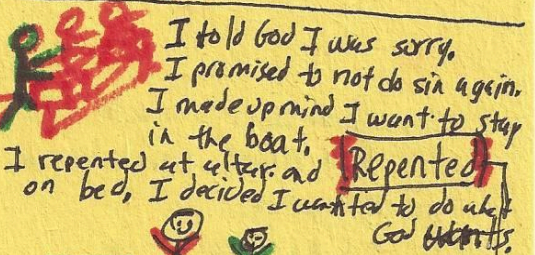 I told God I was sorry.
I promised to not do sin again.
I made up mind I want to stay
in the boat.
Repented
I repented at altar. and
on bed. I decided I wanted to do what
God wants.